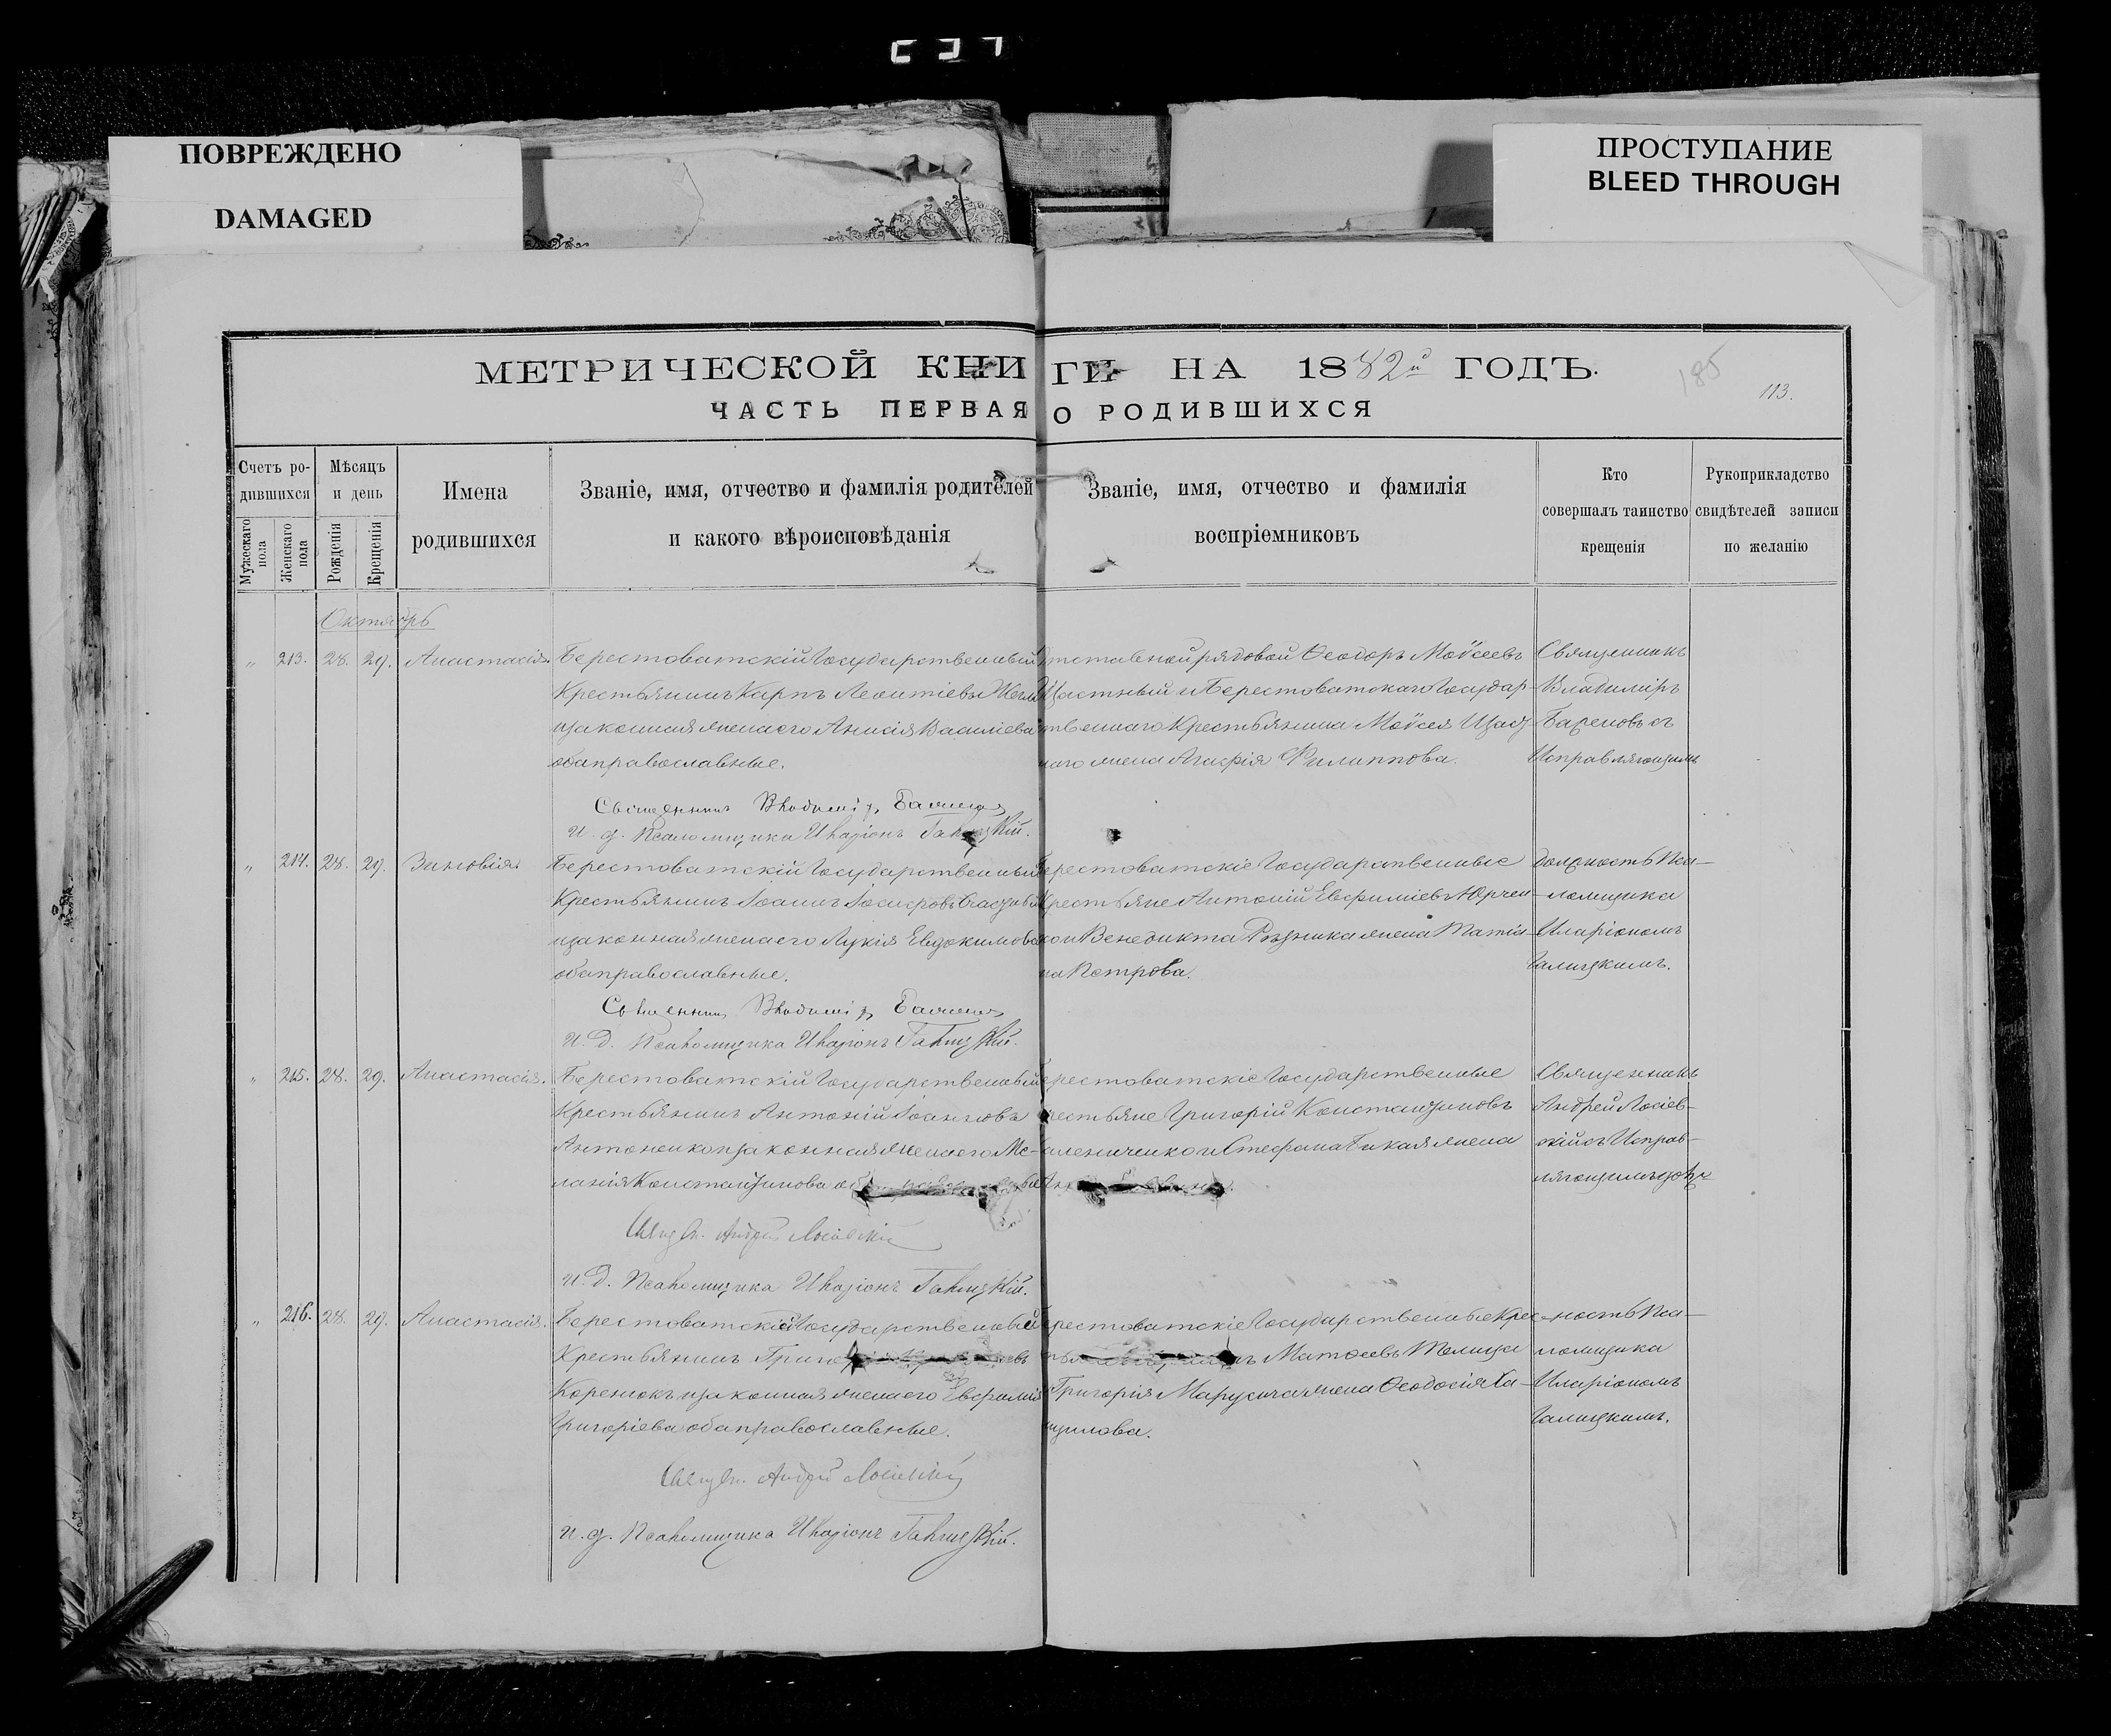 ПОВРЕЖДЕНО
DAMAGED
ПРОСТУПАНИЕ
BLEED THROUGH
МЕТРИЧЕСКОЙ КНИГИ НА 1882й ГОДЪ.
185
113.
ЧАСТЬ ПЕРВАЯ О РОДИВШИХСЯ
Счетъ ро-
дившихся
Мужескаго пола
Женскаго пола
Мѣсяцъ
и день
Рожденія
Крещенія
Имена
родившихся
Званіе, имя, отчество и фамилія родителей
и какого вѣроисповѣданія
Званіе, имя, отчество и фамилія
воспріемниковъ
Кто
совершалъ таинство
крещенія
Рукоприкладство
свидѣтелей записи
по желанію
Октябрь
„ 213. 28. 29. Анастасія.
Берестоватскій Государственный
Крестьянинъ Карпъ Леонтіевъ
и законная жена его Анисія Василіева
оба православные.
Священникъ Владиміръ
и. д. Псаломщика Иларіонъ Галицкій.
Отставной рядовой Ѳеодоръ Моѵсеевъ
Щастный и Берестоватскаго Государ-
ственнаго Крестьянина Моѵсея Щаст-
наго жена Агафія Филиппова.
Священникъ
Владиміръ
съ
Исправляющимъ
„ 214. 28. 29. Зиновія
Берестоватскій Государственный
Крестьянинъ Іоаннъ Іосифовъ
и законная жена его Лукія Евдокимова
оба православные.
Священникъ Владиміръ
и. д. Псаломщика Иларіонъ Галицкій.
Берестоватскіе Государственные
Крестьяне Антоній Евфиміевъ Юрчен-
ко и Венедикта Рѣзника жена Татія-
на Петрова.
должность Пса-
ломщика
Иларіономъ
Галицкимъ.
„ 215. 28. 29. Анастасія.
Берестоватскій Государственный
Крестьянинъ Антоній Іоанновъ
Антоненко и законная жена его Ме-
ланія Константинова
Андрей
и. д. Псаломщика Иларіонъ Галицкій.
Берестоватскіе Государственные
Крестьяне Григорій Константиновъ
и Стефана жена
Священникъ
Андрей Лосіев-
скій съ Исправ-
ляющимъ долж
„ 216. 28. 29. Анастасія.
Берестоватскій Государственный
Крестьянинъ
Коренюкъ и законная жена его Евфимія
Григоріева оба православные.
Андрей
и. д. Псаломщика Иларіонъ Галицкій.
Берестоватскіе Государственные Крес
Матѳеевъ Телица
Григорія Марусича жена Ѳеодосія Да-
нилова.
ность Пса-
ломщика
Иларіономъ
Галицкимъ.